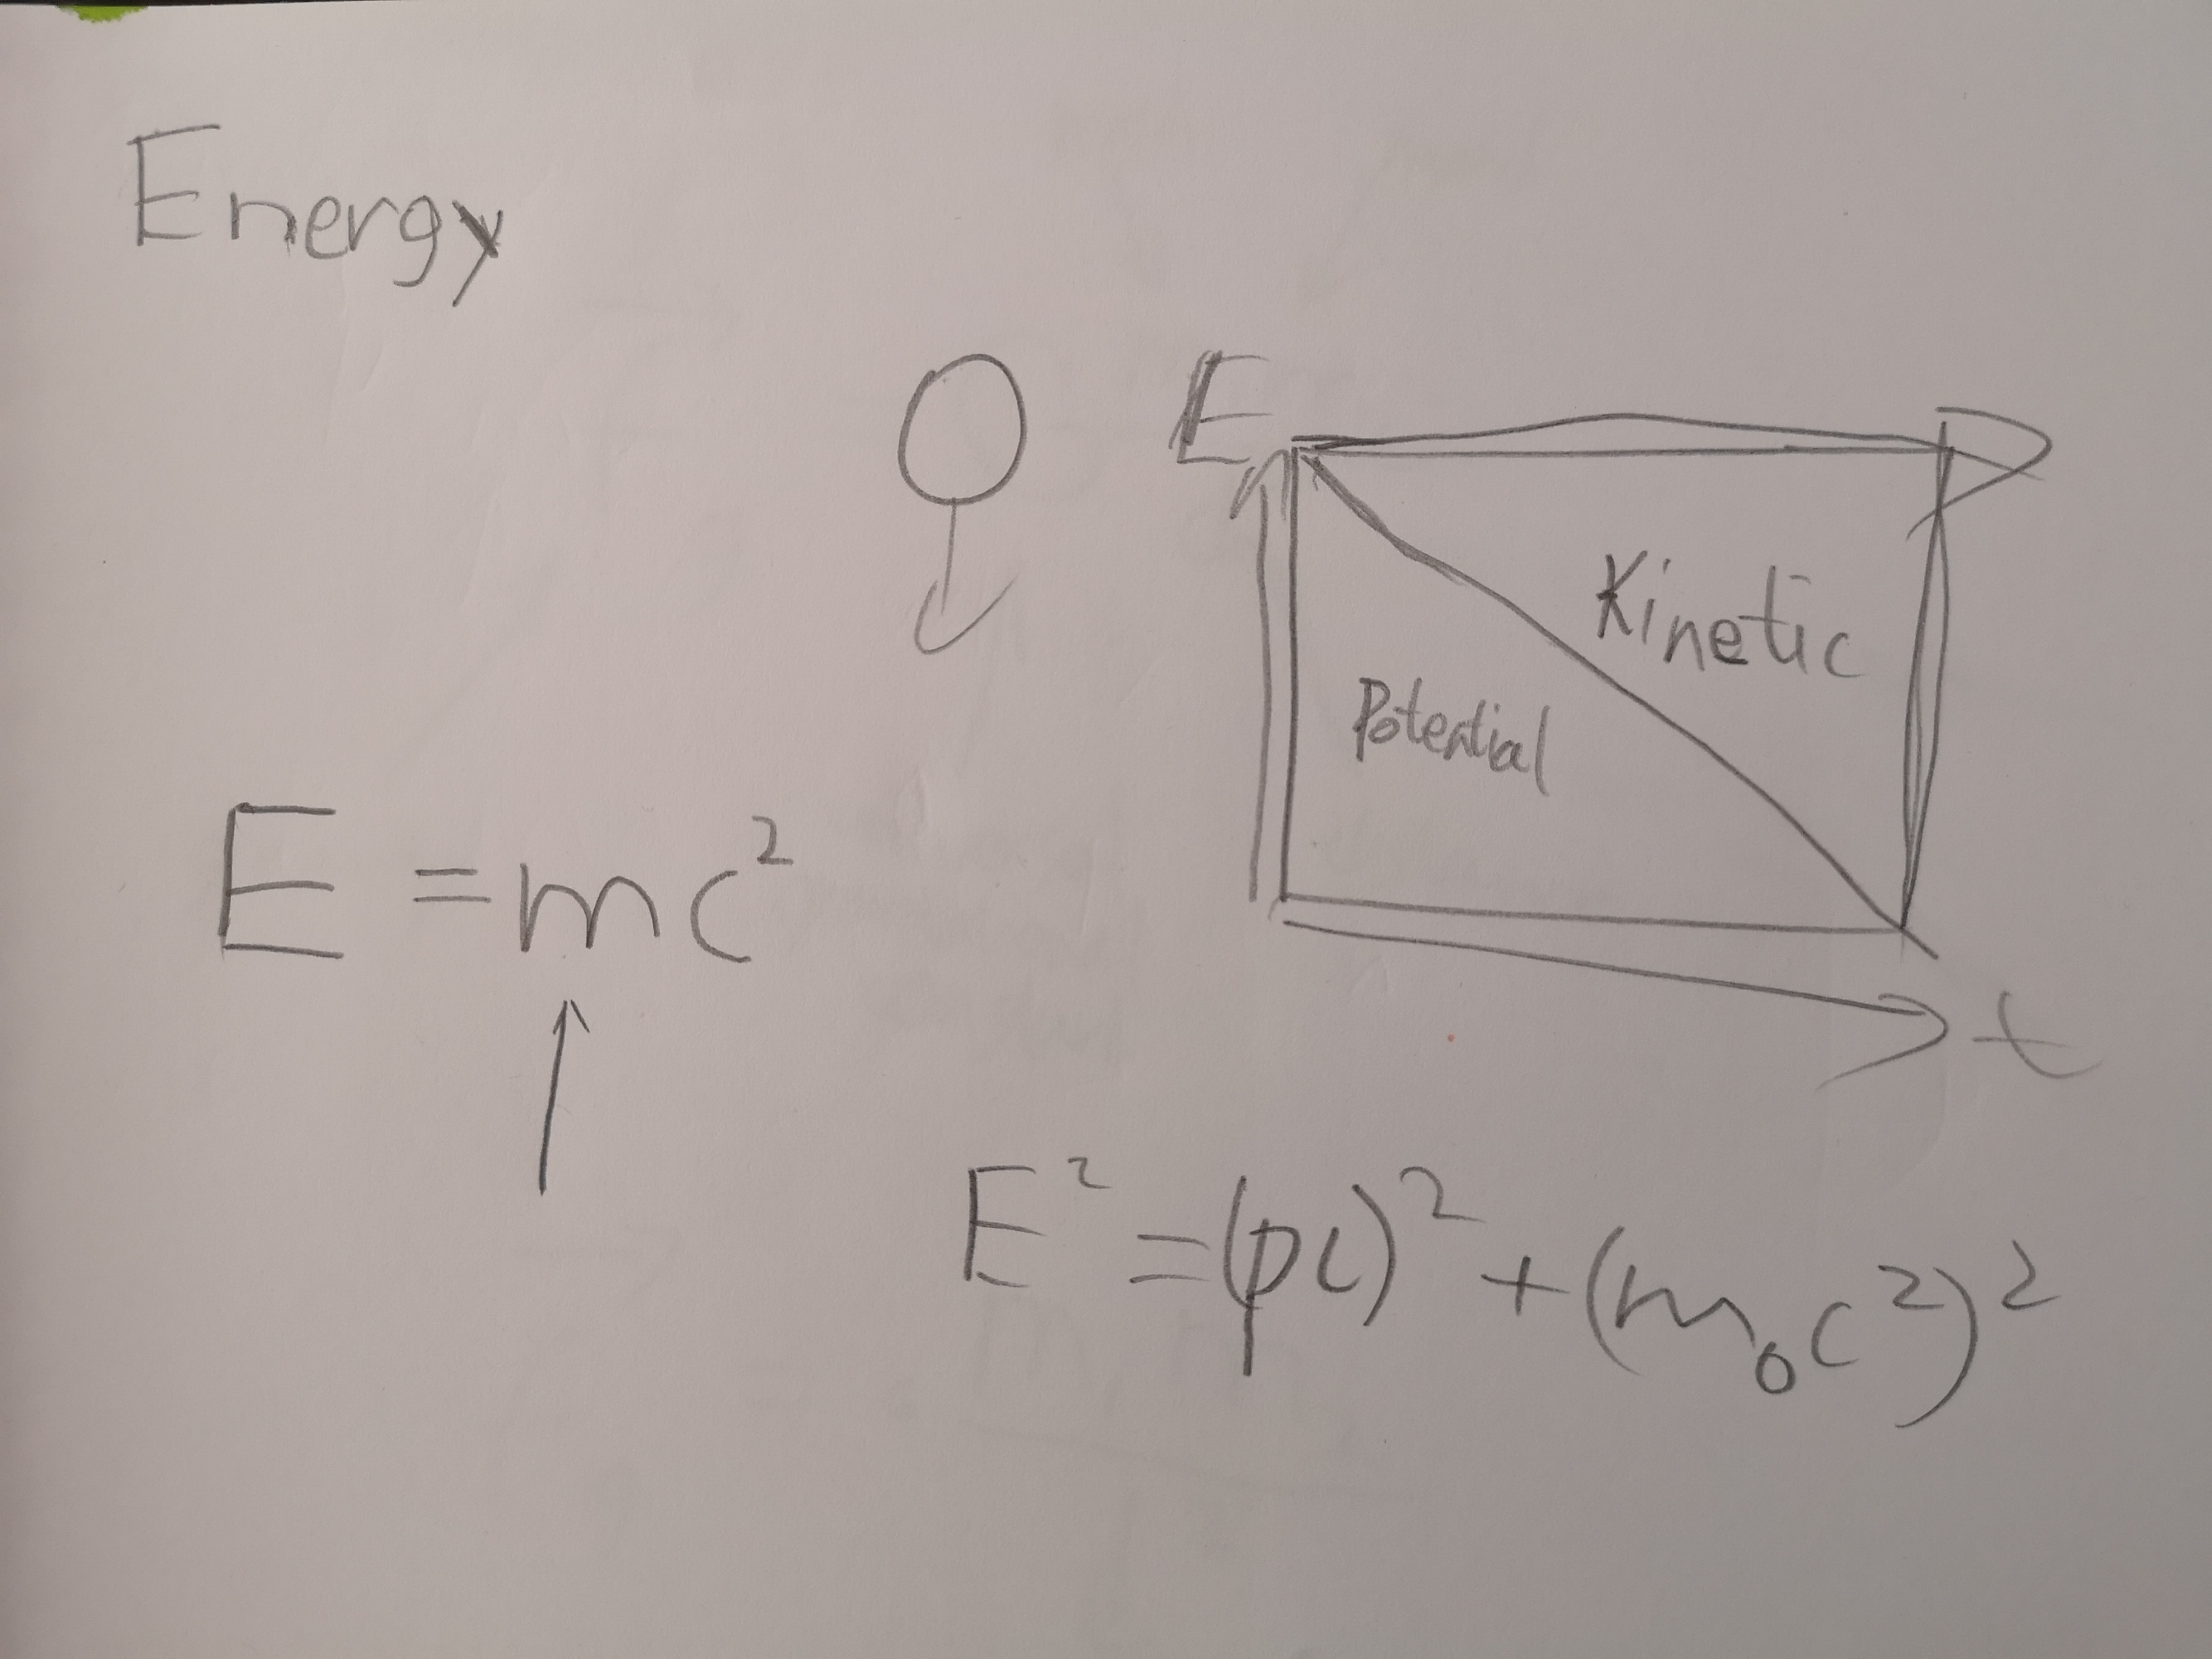 Energy
E
Kinetic
Potential
E = mc²
t
E² = (pc)² + (m₀c²)²